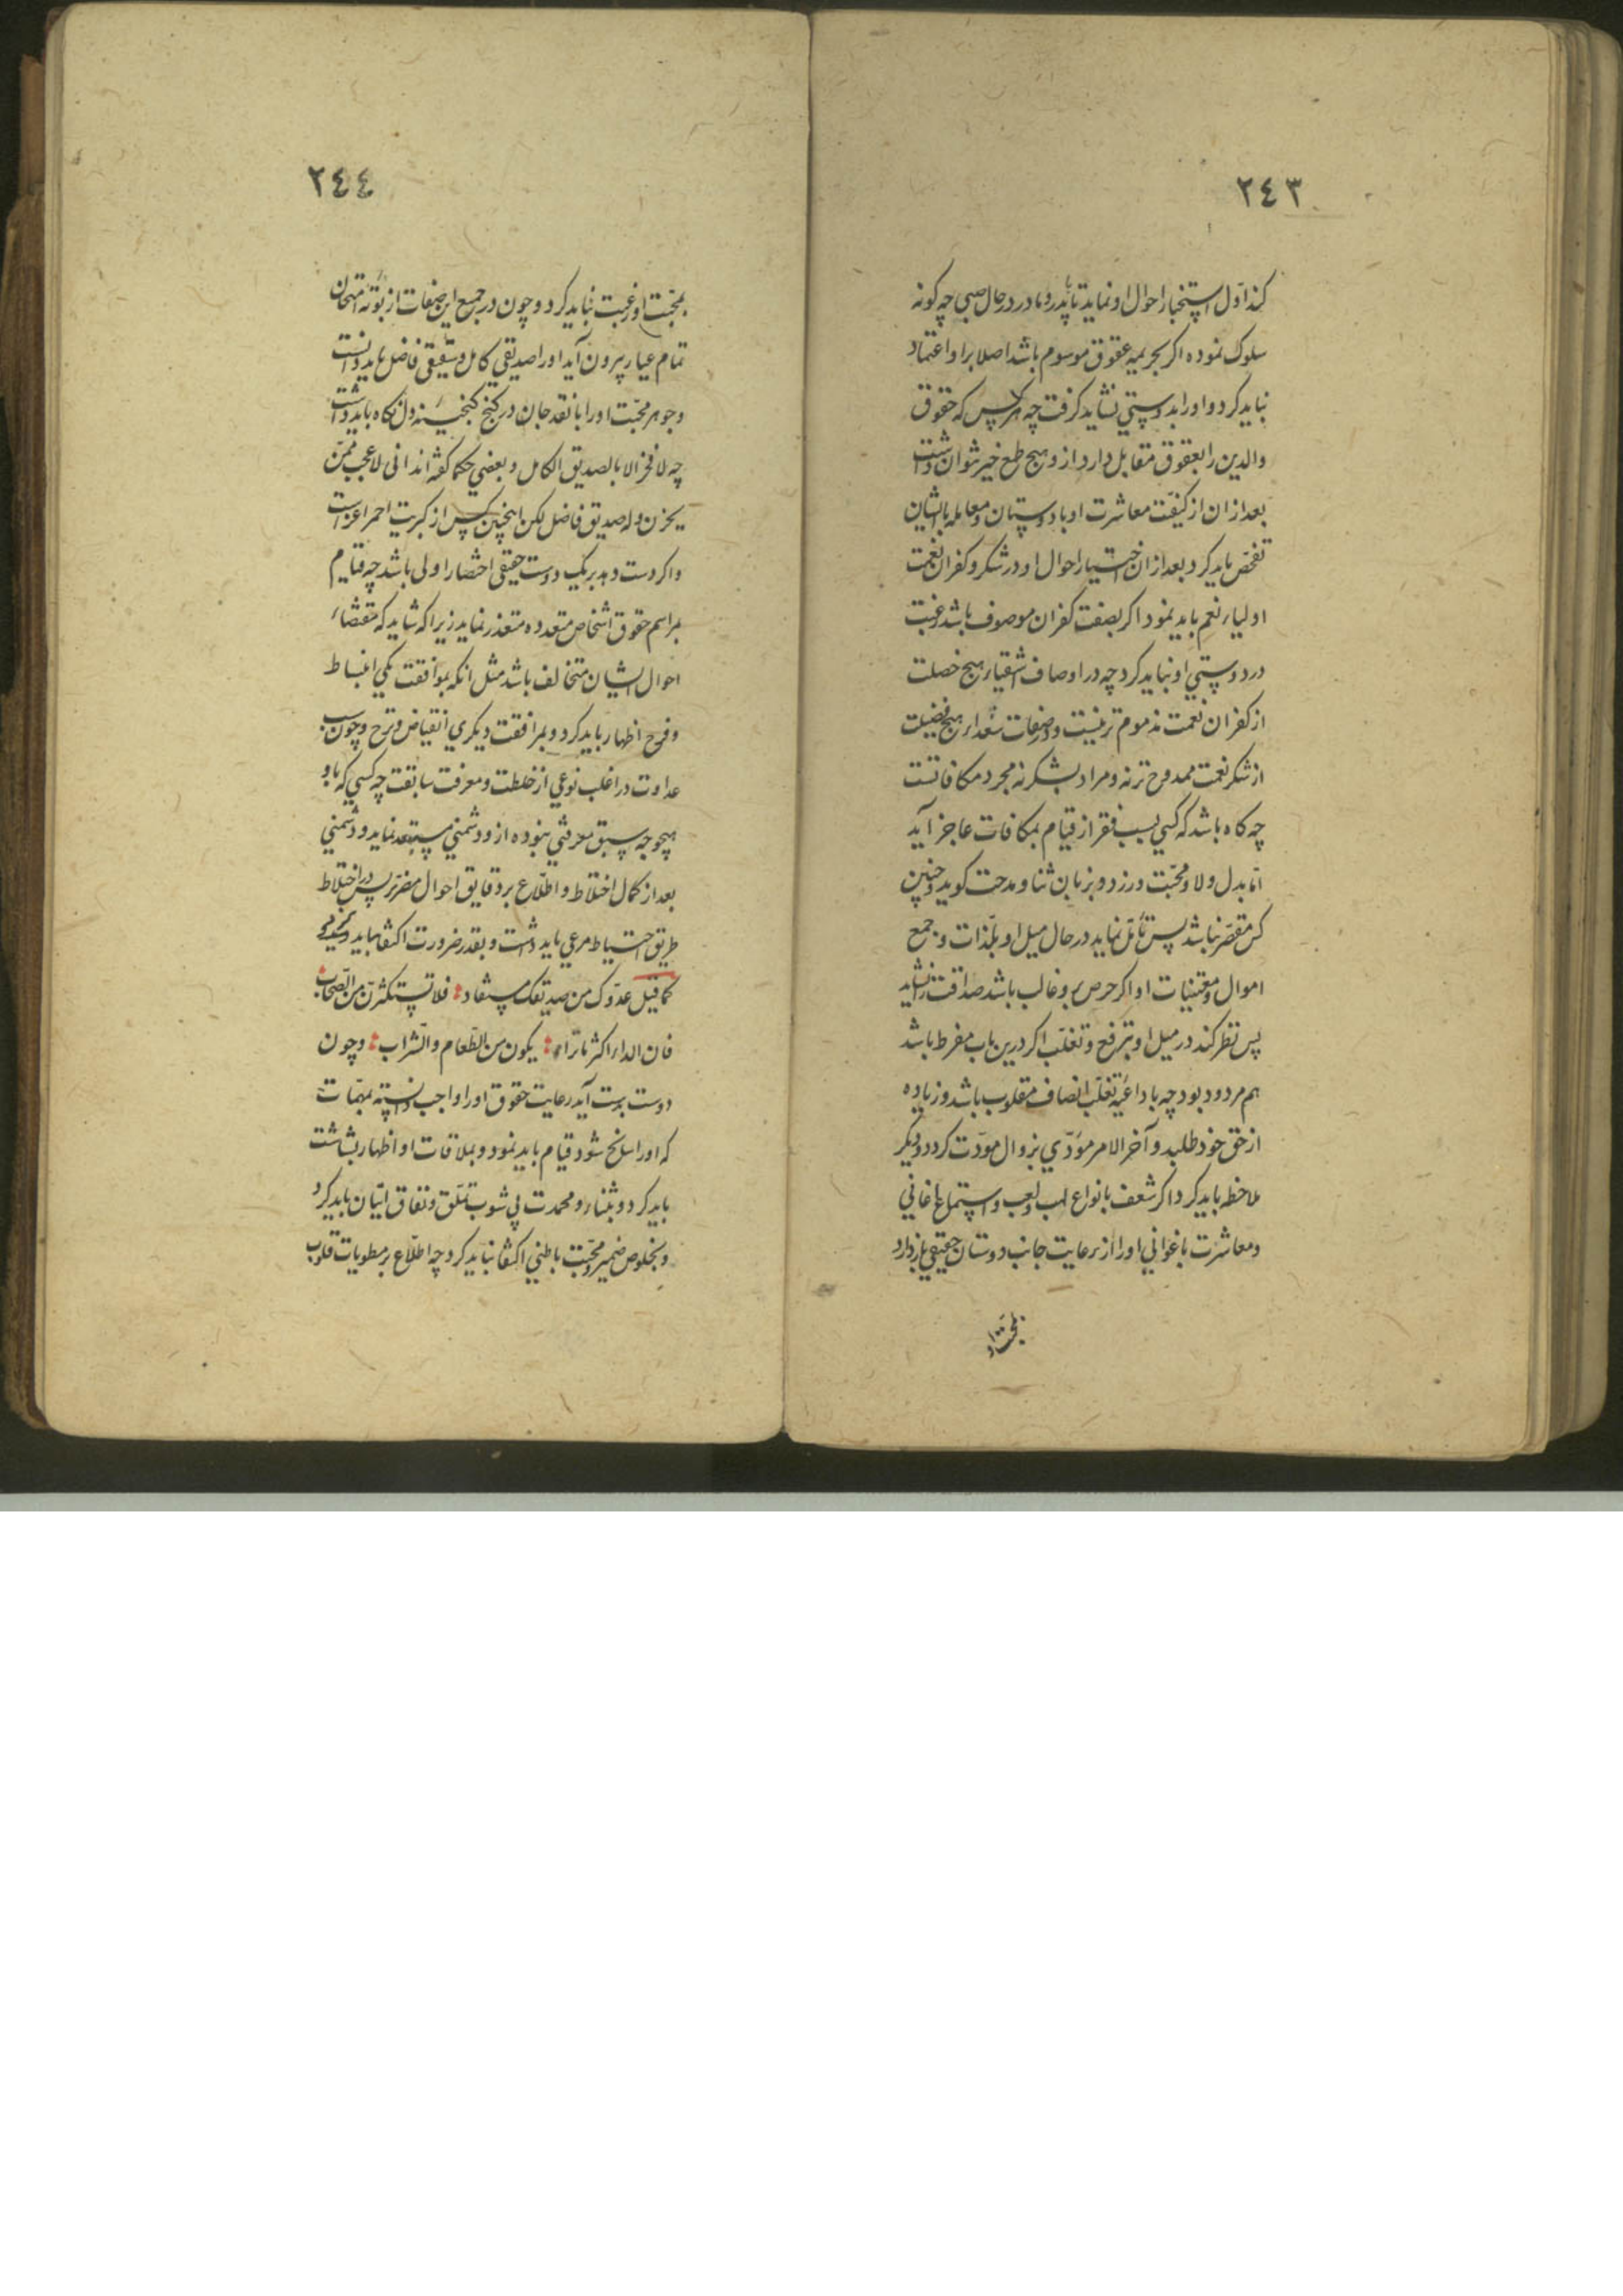 ٢٤٣
کند اول استخبار احوال او نماید تا با پدر و مادر در حال صبی چه کونه
سلوک نموده اکر بجریمه عقوق موسوم باشد اصلا برا و اعتماد
نباید کرد و او را بدوستی نشاید کرفت چه هر کس که حقوق
والدین را بعقوق مقابل دارد از و هیچ طمع خیر نتوان داشت
بعد از ان از کیفیت معاشرت او با دوستان و معامله با ایشان
تفحص باید کرد و بعد از ان اختیار احوال او در شکر و کفران نعمت
اولیاء نعم باید نمود اکر بصفت کفران موصوف باشد رغبت
در دوستی او نباید کرد چه در اوصاف اشقیاء هیچ خصلت
از کفران نعمت مذموم تر نیست و در صفات سعداء هیچ فضیلت
از شکر نعمت ممدوح تر نه و مراد بشکر نه مجرد مکافاتست
چه کاه باشد که کسی بسبب فقر از قیام بمکافات عاجز آید
اما بدل ولا و محبت ورزد و بزبان ثنا و مدحت کوید و چنین
کس مقصر نباشد پس تأمل نماید در حال میل او بلذات و جمع
اموال و مقتنیات او اکر حرص برو غالب باشد صداقت را نشاید
پس نظر کند در میل او بترفع و تغلب اکر درین باب مفرط باشد
هم مردود بود چه با داعیه تغلب انصاف مقلوب باشد و زیاده
از حق خود طلبد و آخر الامر مؤدی بزوال مودت کردد و دیکر
ملاحظه باید کرد اکر شعف بانواع لهب و لعب و استماع اغانی
و معاشرت با غوانی او را از رعایت جانب دوستان حقیقی باز دارد
بمحبت او
٢٤٤
بمحبت او رغبت نباید کرد و چون در جمیع این صفات از بوته امتحان
تمام عیار بیرون آید او را صدیقی کامل و شقیقی فاضل باید دانست
و جوهر محبت او را با نقد جان در کنج کنجینه دل نکاه باید داشت
چه لا فخر الا بالصدیق الکامل و بعضی حکما کفته اند انی لاعجب ممن
یحزن و له صدیق فاضل لکن اینچنین کس از کبریت احمر اعز است
و اکر دست دهد بریک دوست حقیقی اختصار اولی باشد چه قیام
بمراسم حقوق اشخاص متعدده متعذر نماید زیرا که شاید که مقتضاء
احوال ایشان متخالف باشد مثل انکه بموافقت یکی انبساط
و فرح اظهار باید کرد و بمرافقت دیکری انقباض و ترح و چون سبب
عداوت در اغلب نوعی از خلطت و معرفت سابقت چه کسی که با و
بهیچ وجه سبق معرفتی نبوده از و دشمنی مستبعد نماید و دشمنی
بعد از کمال اختلاط و اطلاع بر دقایق احوال مضرتر پس در اختلاط
طریق احتیاط مرعی باید داشت و بقدر ضرورت اکتفا باید
کما قیل عدوک من صدیقک مستفاد فلا تستکثرن من الصحاب
فان الداء اکثر ما تراه یکون من الطعام و الشراب و چون
دوست بدست آید رعایت حقوق او را واجب دانسته بمهمات
که او را سانح شود قیام باید نمود و بملاقات او اظهار بشاشت
باید کرد و بثناء و محمدت بی شوب تملق و نفاق اتیان باید کرد
و بخلوص ضمیر و محبت باطنی اکتفا نباید کرد چه اطلاع بر مطویات قلوب